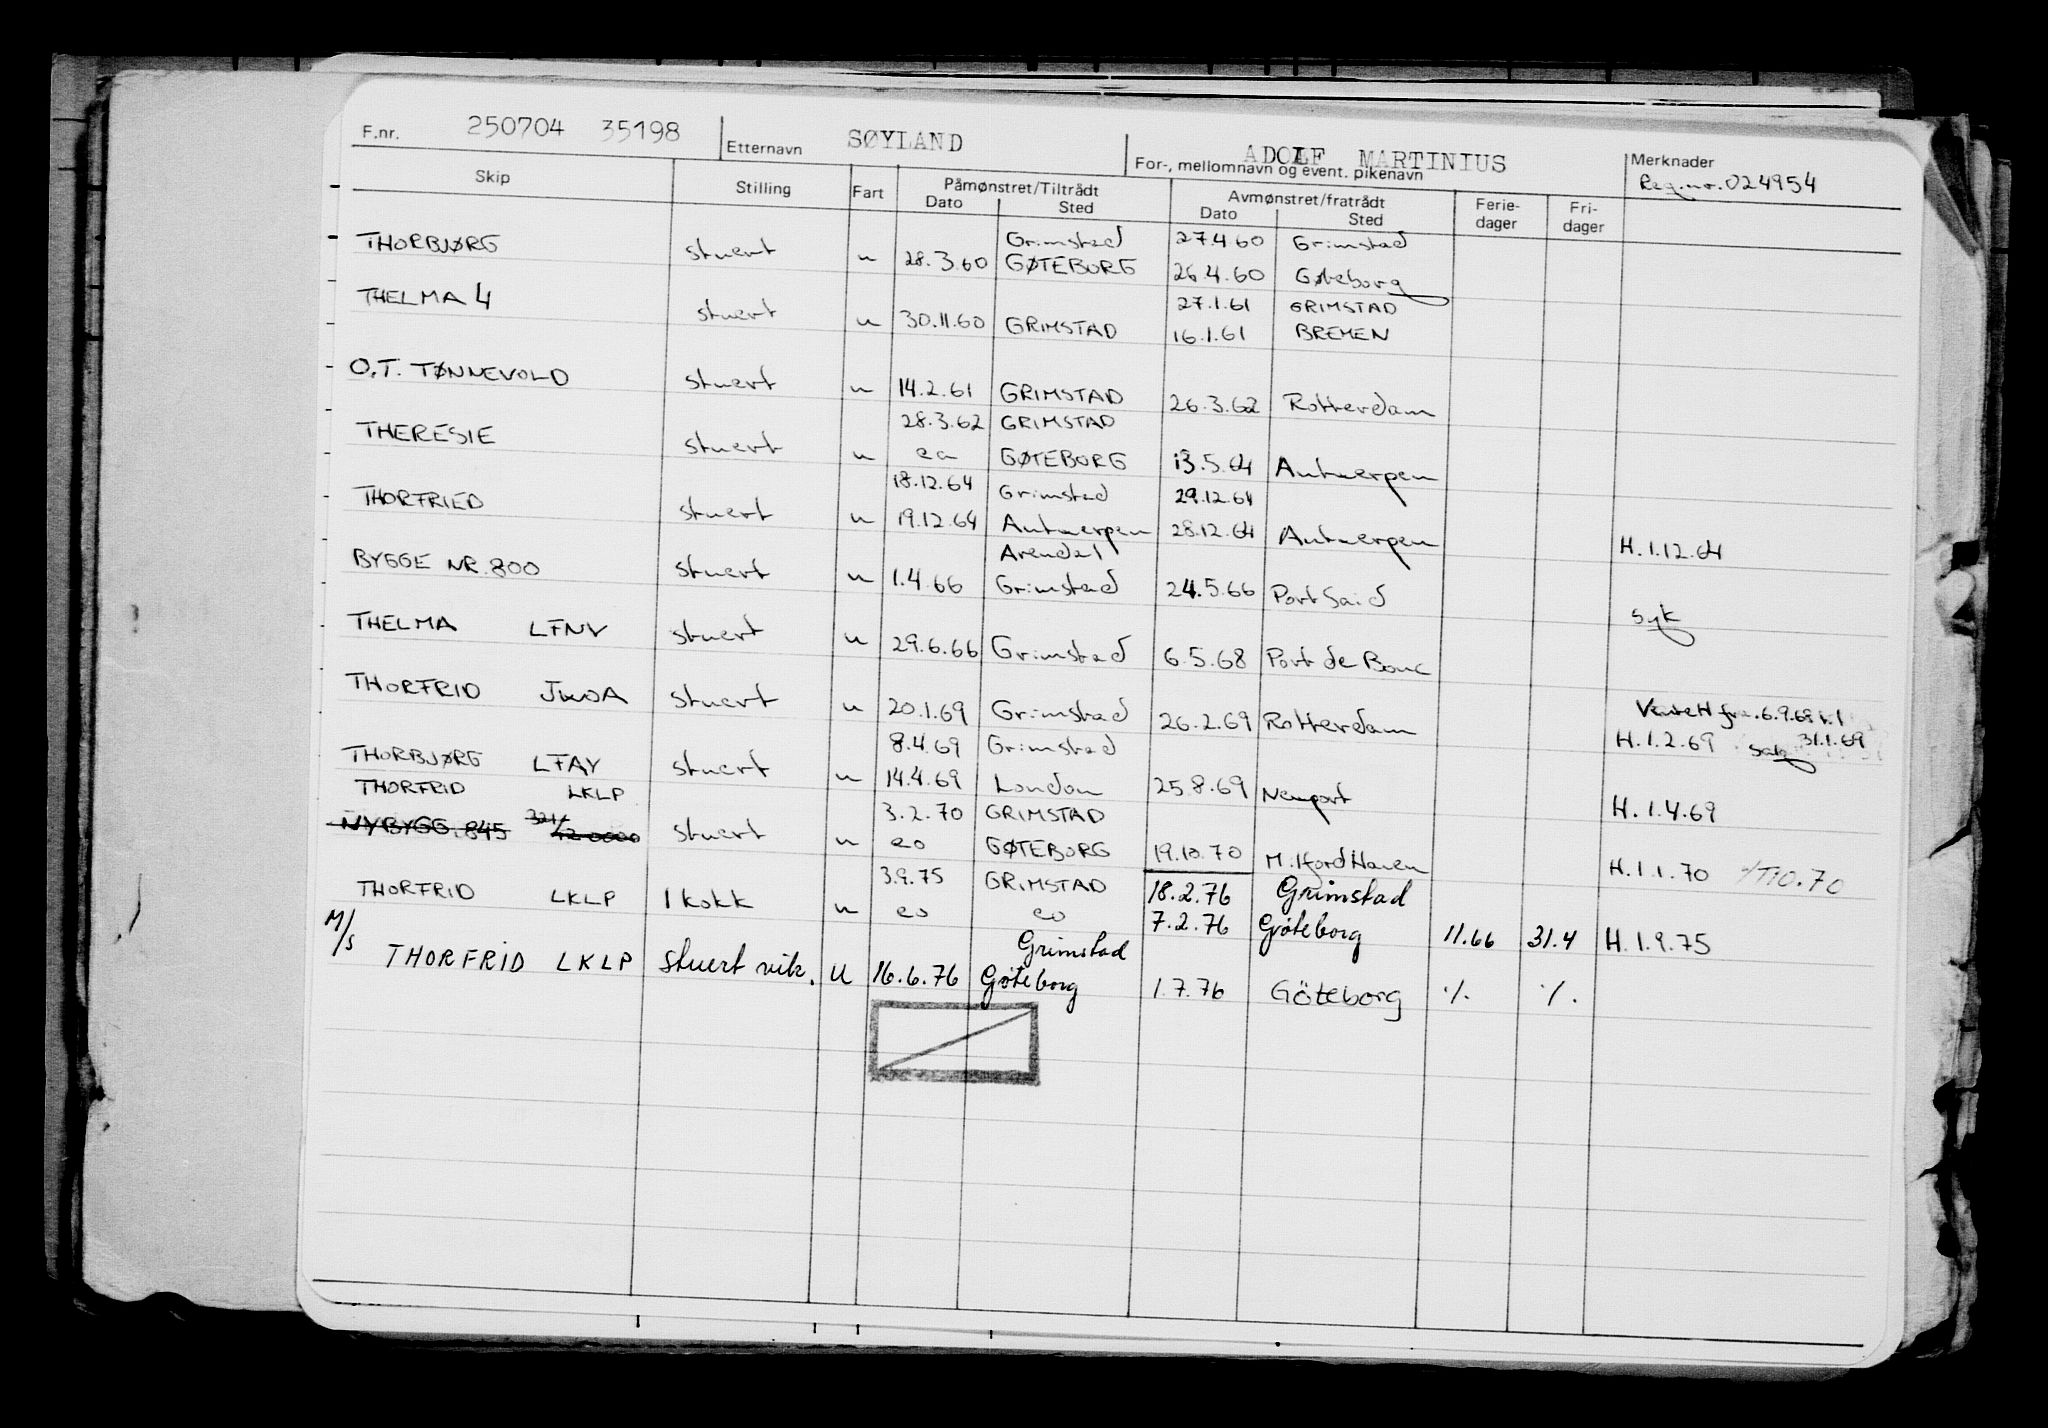 F.nr. 250704 35198 Etternavn SØYLAND For-, mellomnavn og event. pikenavn ADOLF MARTINIUS Merknader
Reg.nr. 024954
Skip Stilling Fart Påmønstret/Tiltrådt Avmønstret/fratrådt Ferie-dager Fri-dager
Dato Sted Dato Sted
Grimstad 27.4.60 Grimstad
THORBJØRG stuert u 28.3.60 GØTEBORG 26.4.60 Gøteborg
27.1.61 GRIMSTAD
THELMA 4 stuert u 30.11.60 GRIMSTAD 16.1.61 BREMEN
O.T. TØNNEVOLD stuert u 14.2.61 GRIMSTAD 26.3.62 Rotterdam
28.3.62 GRIMSTAD
THERESIE stuert u eo GØTEBORG 13.5.64 Antwerpen
18.12.64 Grimstad 29.12.64
THORFRIED stuert u 19.12.64 Antwerpen 28.12.64 Antwerpen H.1.12.64
Arendal
BYGGE NR. 800 stuert u 1.4.66 Grimstad 24.5.66 Port Said syk
THELMA LFNV stuert u 29.6.66 Grimstad 6.5.68 Port de Bouc
VenteH fra 6.9.68 t.
31.1.69
THORFRID JWOA stuert u 20.1.69 Grimstad 26.2.69 Rotterdam H.1.2.69
8.4.69 Grimstad
THORBJØRG LFAY stuert u 14.4.69 London 25.8.69 Newport H.1.4.69
THORFRID LKLP 3.2.70 GRIMSTAD
NYBYGG. 845 stuert u eo GØTEBORG 19.10.70 Milford Haven H.1.1.70
3.9.75 GRIMSTAD 18.2.76 Grimstad
THORFRID LKLP 1 kokk u eo eo 7.2.76 Göteborg 11.66 31.4 H.1.9.75
Grimstad
M/S THORFRID LKLP stuert vik. u 16.6.76 Göteborg 1.7.76 Göteborg ./. ./.